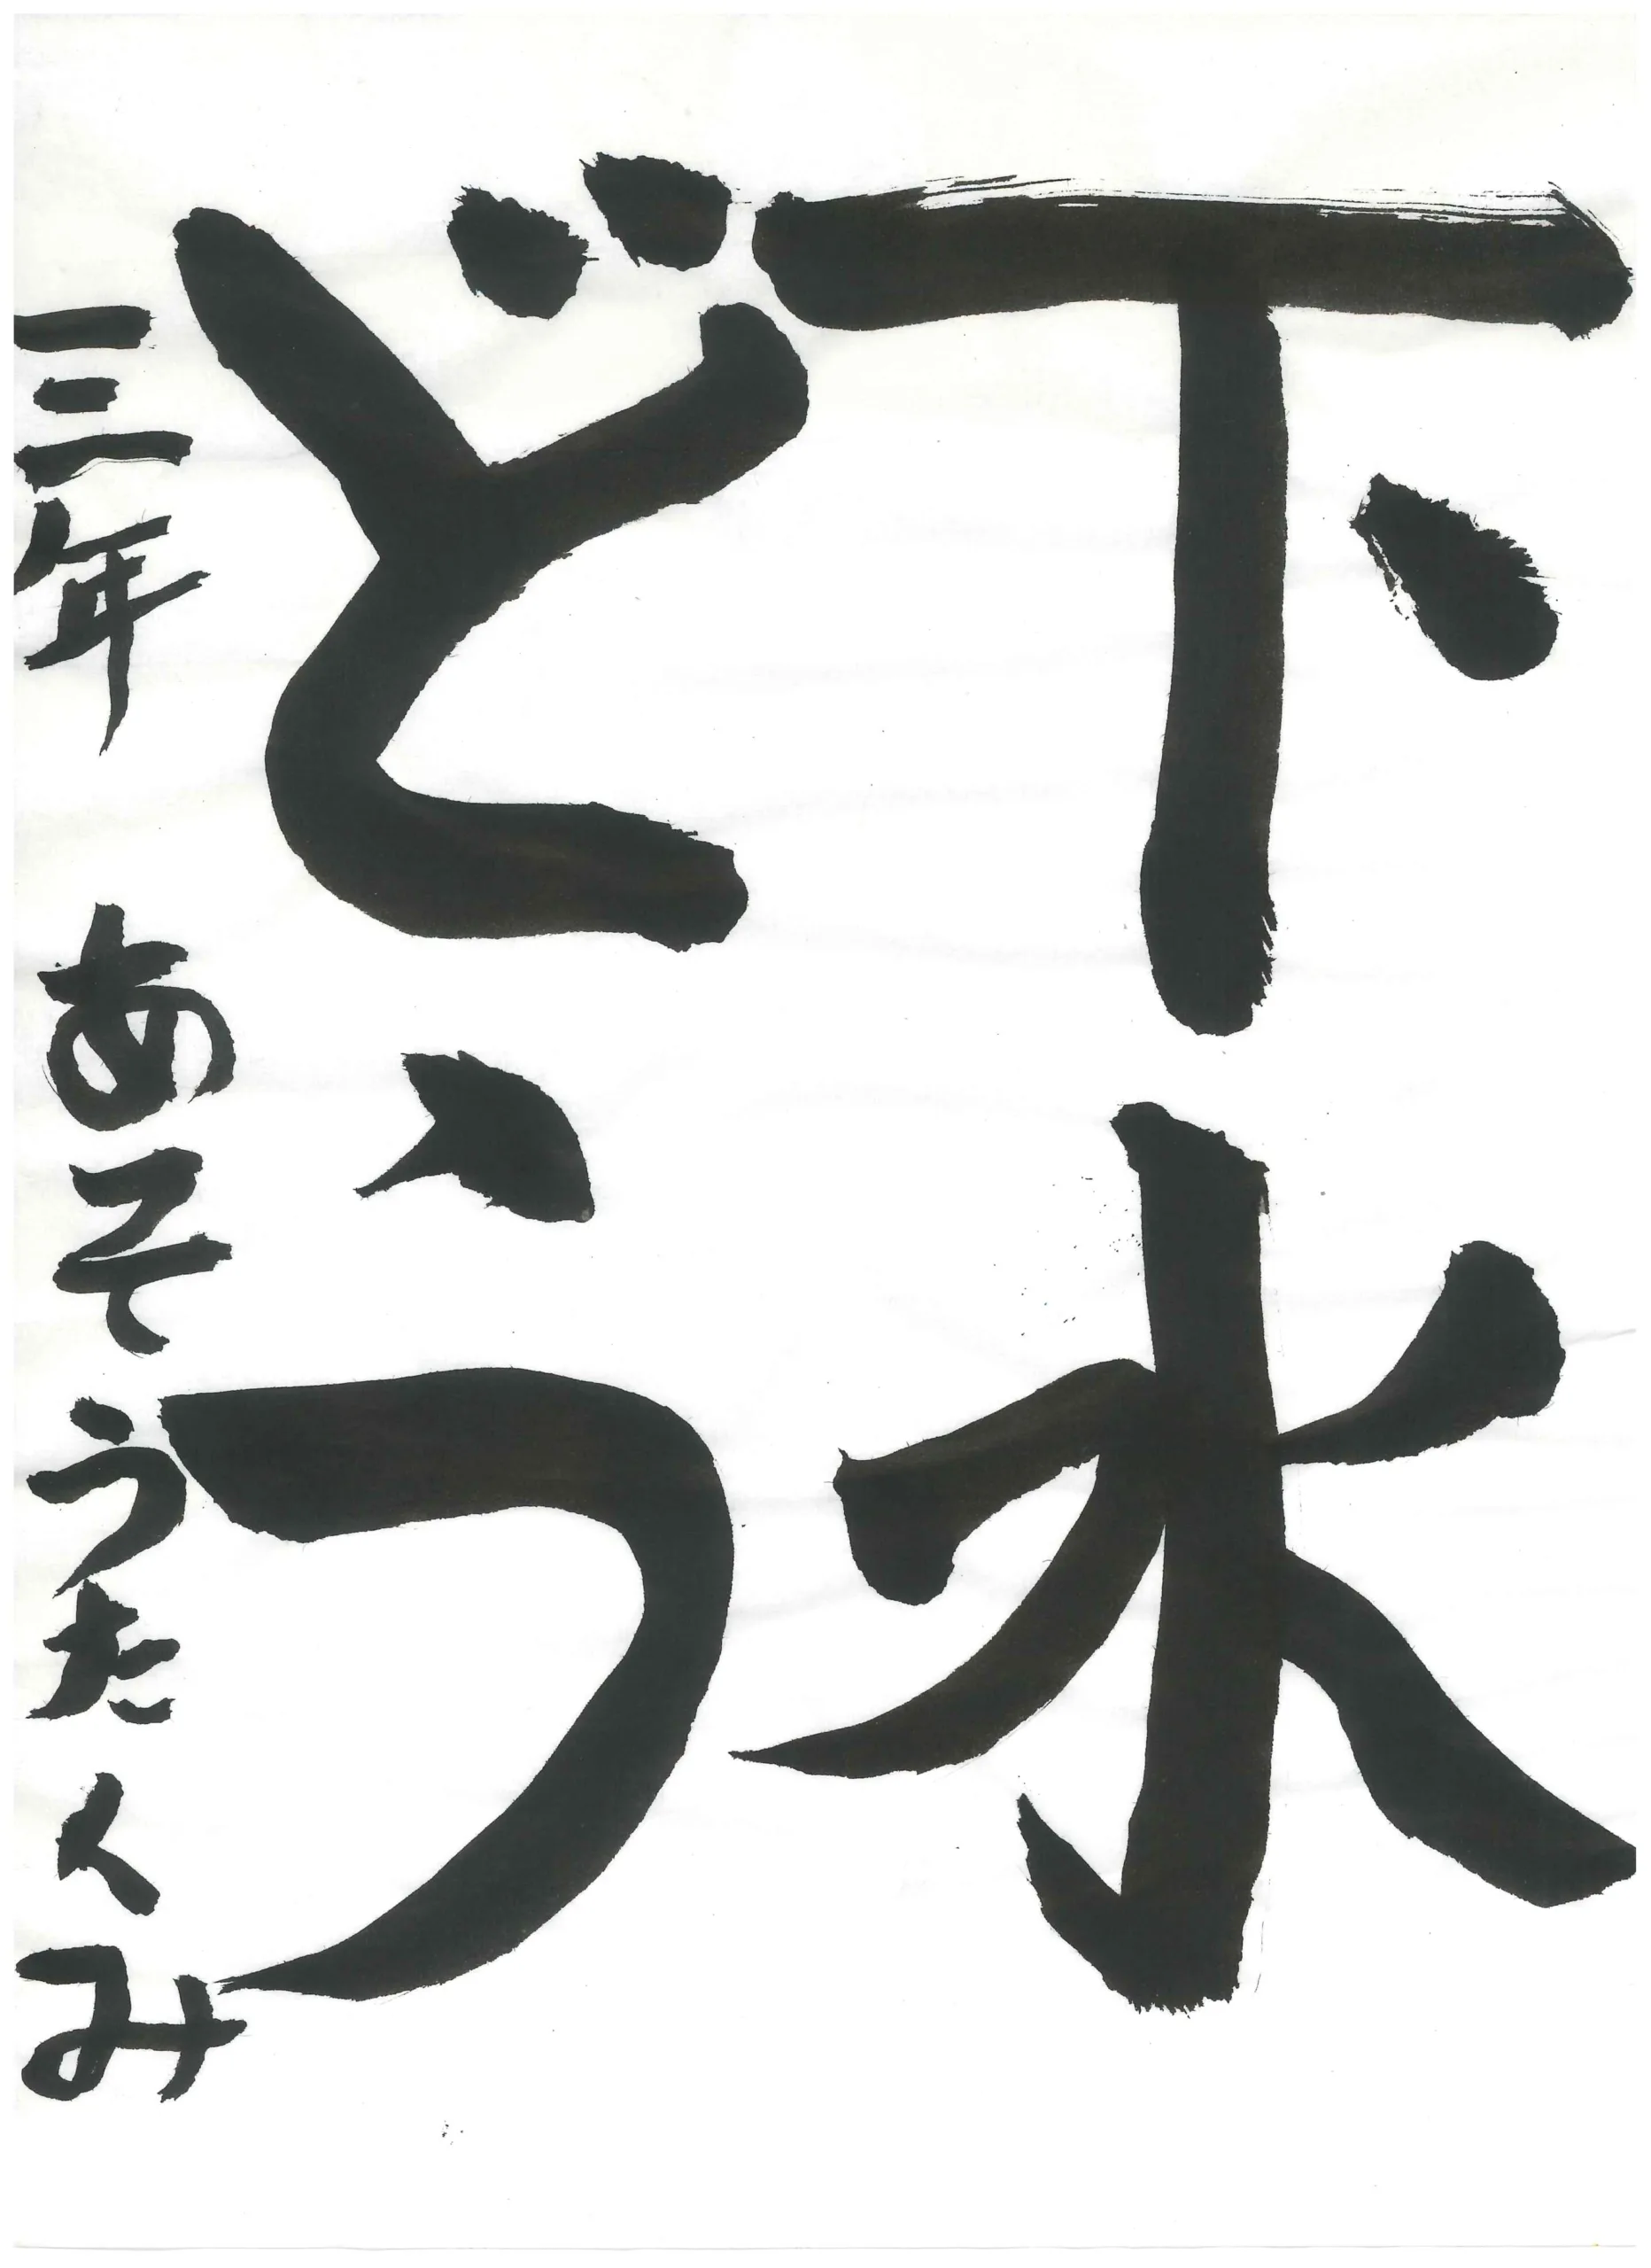 下水
どう
三年 あそうたくみ